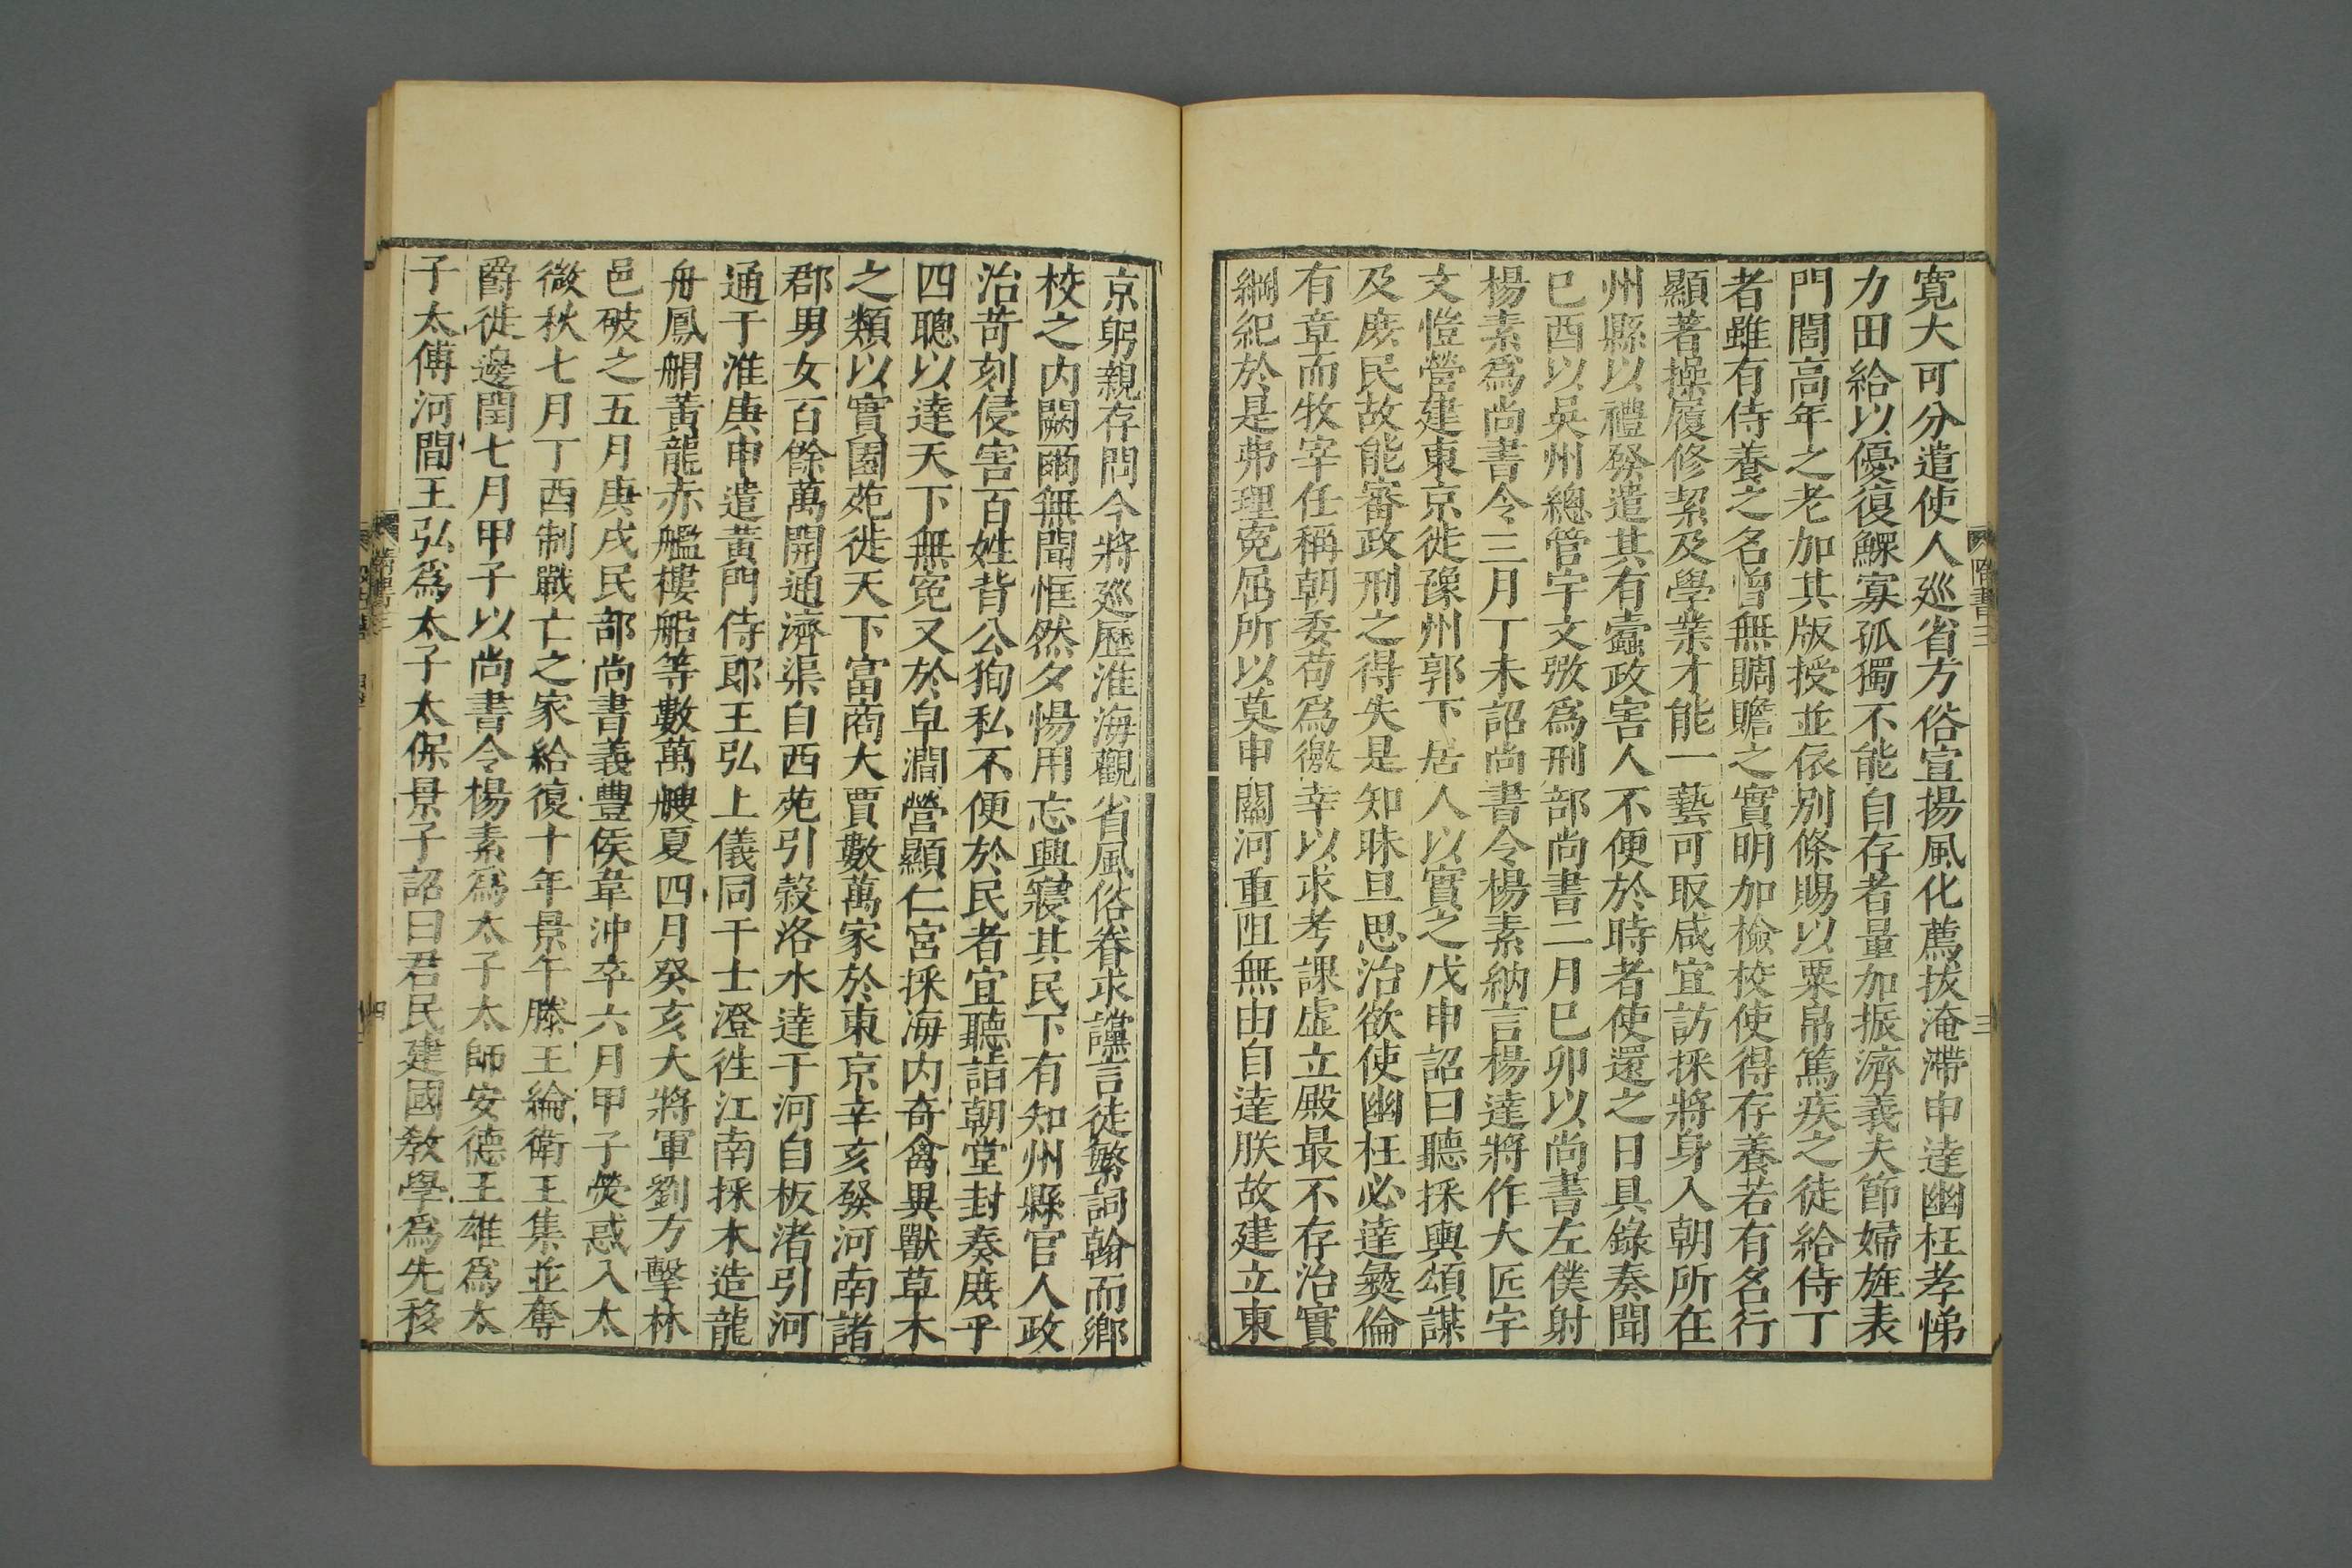 寬大可分遣使人巡省方俗宣揚風化薦拔淹滯申達幽枉孝悌
力田給以優復鰥寡孤獨不能自存者量加振濟義夫節婦旌表
門閭高年之老加其版授並依別條賜以粟帛篤疾之徒給侍丁
者雖有侍養之名曾無賙贍之實明加檢校使得存養若有名行
顯著操履修絜及學業才能一藝可取咸宜訪採將身入朝所在
州縣以禮發遣其有蠧政害人不便於時者使還之日具錄奏聞
巳酉以吳州總管宇文㢸爲刑部尚書二月巳卯以尚書左僕射
楊素爲尚書令三月丁未詔尚書令楊素納言楊達將作大匠宇
文愷營建東京徙豫州郭下居人以實之戊申詔曰聽採輿頌謀
及庶民故能審政刑之得失是知昧旦思治欲使幽枉必達彝倫
有章而牧宰任稱朝委苟爲徼幸以求考課虛立殿最不存治實
綱紀於是弗理寃屈所以莫申關河重阻無由自達朕故建立東
隋書三
三
京躬親存問今將巡歷淮海觀省風俗眷求讜言徒繁詞翰而鄉
校之内闕爾無聞恇然夕惕用忘興寢其民下有知州縣官人政
治苛刻侵害百姓背公徇私不便於民者宜聽詣朝堂封奏庶乎
四聰以達天下無寃又於皁澗營顯仁宮採海内奇禽異獸草木
之類以實園苑徙天下富商大賈數萬家於東京辛亥發河南諸
郡男女百餘萬開通濟渠自西苑引榖洛水達于河自板渚引河
通于淮庚申遣黃門侍郎王弘上儀同于士澄往江南採木造龍
舟鳳䑽黃龍赤艦樓船等數萬艘夏四月癸亥大將軍劉方擊林
邑破之五月庚戌民部尚書義豐侯韋沖卒六月甲子熒惑入太
微秋七月丁酉制戰亡之家給復十年景午滕王綸衛王集並奪
爵徙邊閏七月甲子以尚書令楊素爲太子太師安德王雄爲太
子太傅河間王弘爲太子太保景子詔曰君民建國敎學爲先移
四